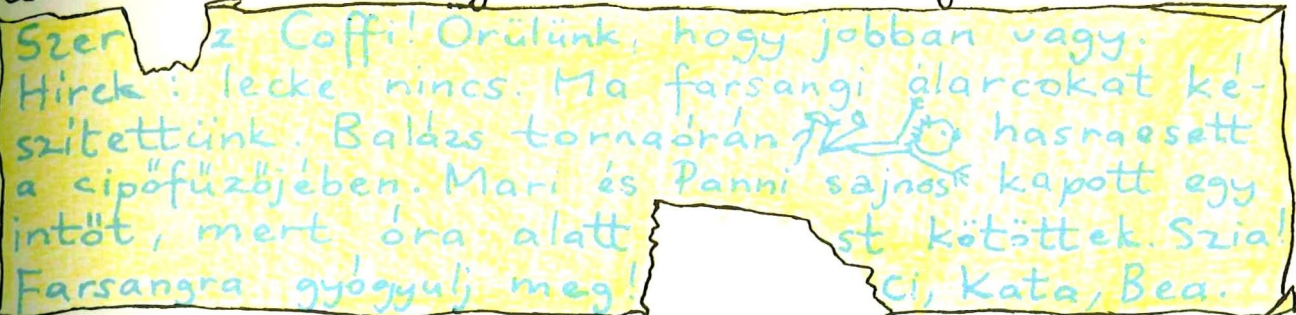 Szer z Coffi! Örülünk, hogy jobban vagy.
Hírek: lecke nincs. Ma farsangi álarcokat ké-
szítettünk. Balázs tornaórán hasraesett
a cipőfűzőjében. Mari és Panni sajnos kapott egy
intőt, mert óra alatt st kötöttek. Szia!
Farsangra gyógyulj meg! ci, Kata, Bea.